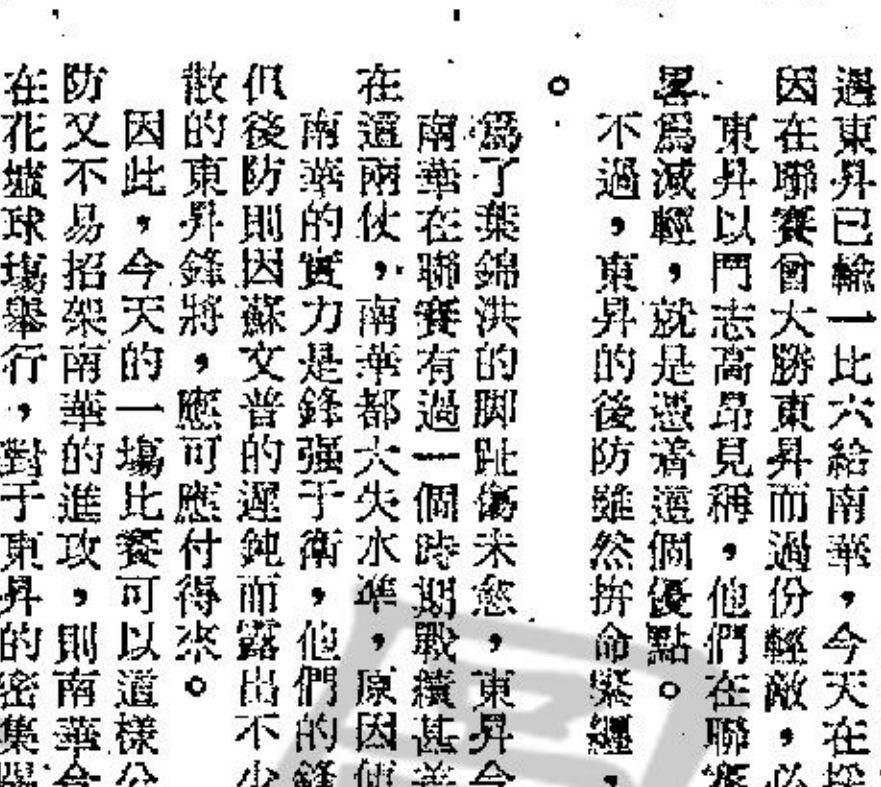 遇東昇已輸一比六給南華，今天在採
因在聯賽曾大勝東昇而過份輕敵，必
東昇以鬥志高昂見稱，他們在聯賽
畧爲減輕，就是憑着這個優點。
不過，東昇的後防雖然拚命緊纒，
。
爲了葉錦洪的脚趾傷未愈，東昇今
南華在聯賽有過一個時期戰績甚差
在這兩仗，南華都大失水準，原因便
南華的實力是鋒强于衛，他們的鋒
但後防則因蘇文普的遲鈍而露出不少
散的東昇鋒將，應可應付得來。
因此，今天的一塲比賽可以這樣分
防又不易招架南華的進攻，則南華會
在花墟球塲舉行，對于東昇的密集